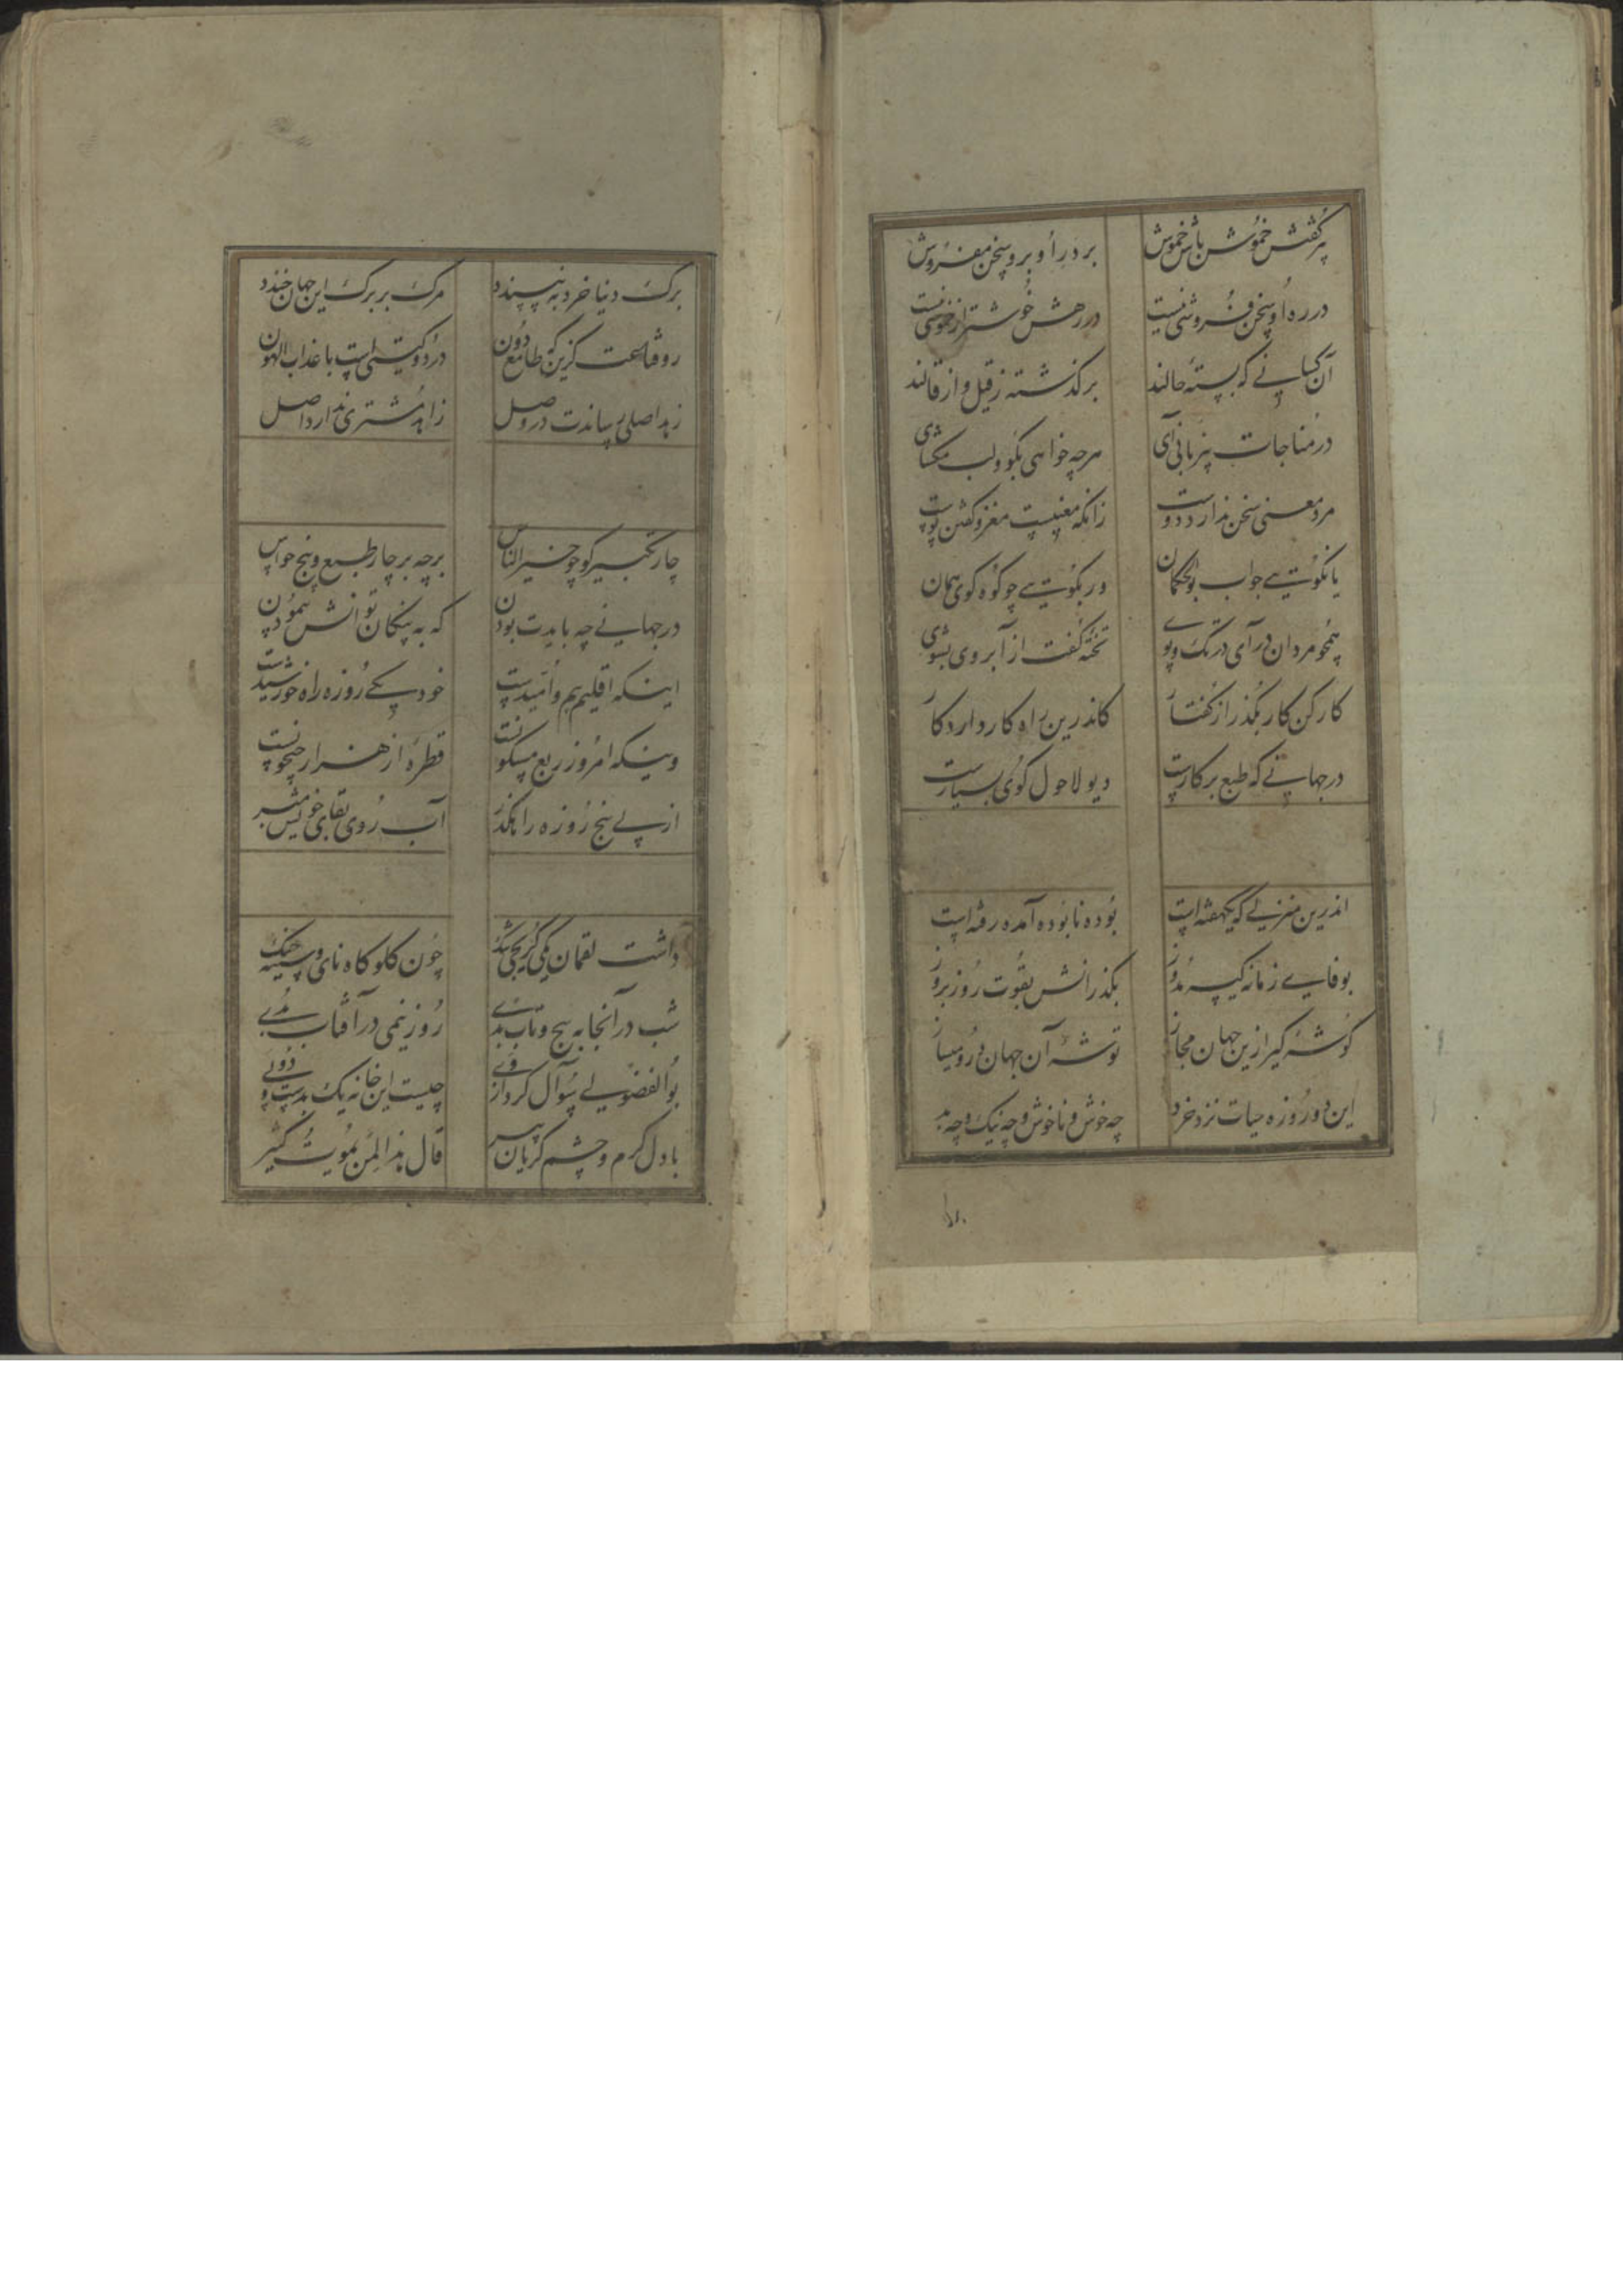 پر گفتش خموش باش خموش بر در او برو سخن مفروش
در ره او سخن فروشی نیست در رهش خوشتر از خموشی نیست
آن کسانی که بسته حالند برگذشته ز قیل و از قالند
در مناجات بیزبانی آی هرچه خواهی بگو و لب مگشای
مرد معنی سخن ندارد دوست زانکه معنیست مغز و گفتن پوست
یا نگوئی جواب بوالحکمان ور بگوئی چو کوه گوی همان
همچو مردان درآی در تک و پوی تخته گفت از آبروی بشوی
کار کن کار بگذر از گفتار کاندرین راه کار دارد کار
در جهانی که طبع بر کارست دیو لاحول گوی بسیارست
اندرین منزلی که یکهفته است بوده نابوده آمده رفته است
بوفای زمانه کیسه مدوز بگذرانش بقوت روز بروز
گوشه گیر ازین جهان مجاز توشه آن جهان درو میساز
این دو روزه حیات نزد خرد چه خوش و ناخوش و چه نیک و چه بد
برگ دنیا خرد به نپسندد مرگ بر برگ این جهان خندد
رو قناعت گزین که طامع دون در دو گیتی است با عذاب الهون
زهد اصلی رساندت در وصل زاهد مشتری ندارد اصل
چار تکبیر گو چو خیر الناس برچه بر چار طبع و پنج حواس
در جهانی چه بایدت بودن که به پنکان توانش پیمودن
اینکه اقلیم بیم و امیدست خود یکی روزه راه خورشیدست
وینکه امروز ربع مسکونست قطره از هزار جیحونست
از پی پنج روزه را مگذر آب روی بقای خویش مبر
داشت لقمان یکی کریجی تنگ چون گلوگاه نای و سینه چنگ
شب در آنجا به پیچ و تاب بدی روز نیمی در آفتاب بدی
بوالفضولی سوال کرد از وی چیست این خانه یک بدست و دو پی
با دل گرم و چشم گریان پیر قال هذا لمن یموت کثیر